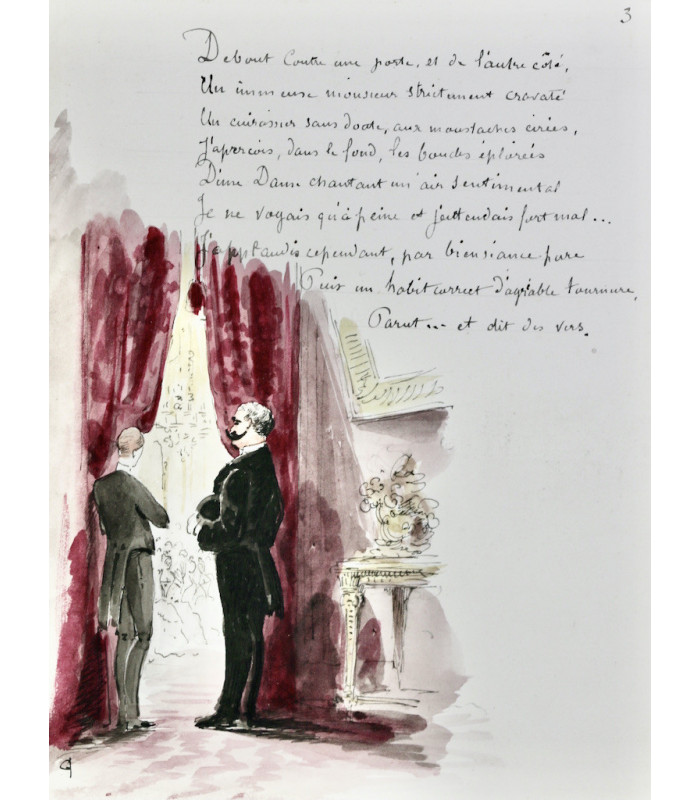 3
Debout contre une porte, et de l'autre côté,
Un immense monsieur strictement cravaté
Un cuirassier sans doute, aux moustaches cirées,
J'aperçois, dans le fond, les boucles éplorées
D'une Dame chantant un air sentimental
Je ne voyais qu'à peine et j'entendais fort mal...
J'applaudis cependant, par bienséance pure
Puis un habit correct d'agréable tournure,
Parut... et dit des vers.